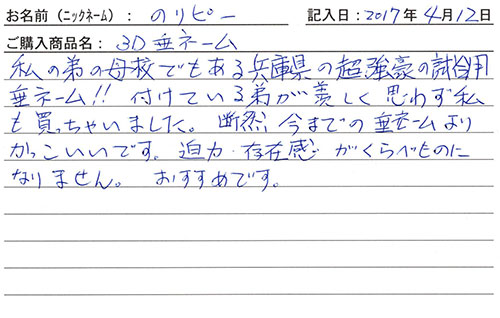 お名前（ニックネーム）：のりピー 記入日：2017年4月12日
ご購入商品名：3D垂ネーム
私の弟の母校でもある兵庫県の超強豪の試合用
垂ネーム!! 付けている弟が羨しく思わず私
も買っちゃいました。断然、今までの垂ネームより
かっこいいです。迫力・存在感がくらべものに
なりません。おすすめです。